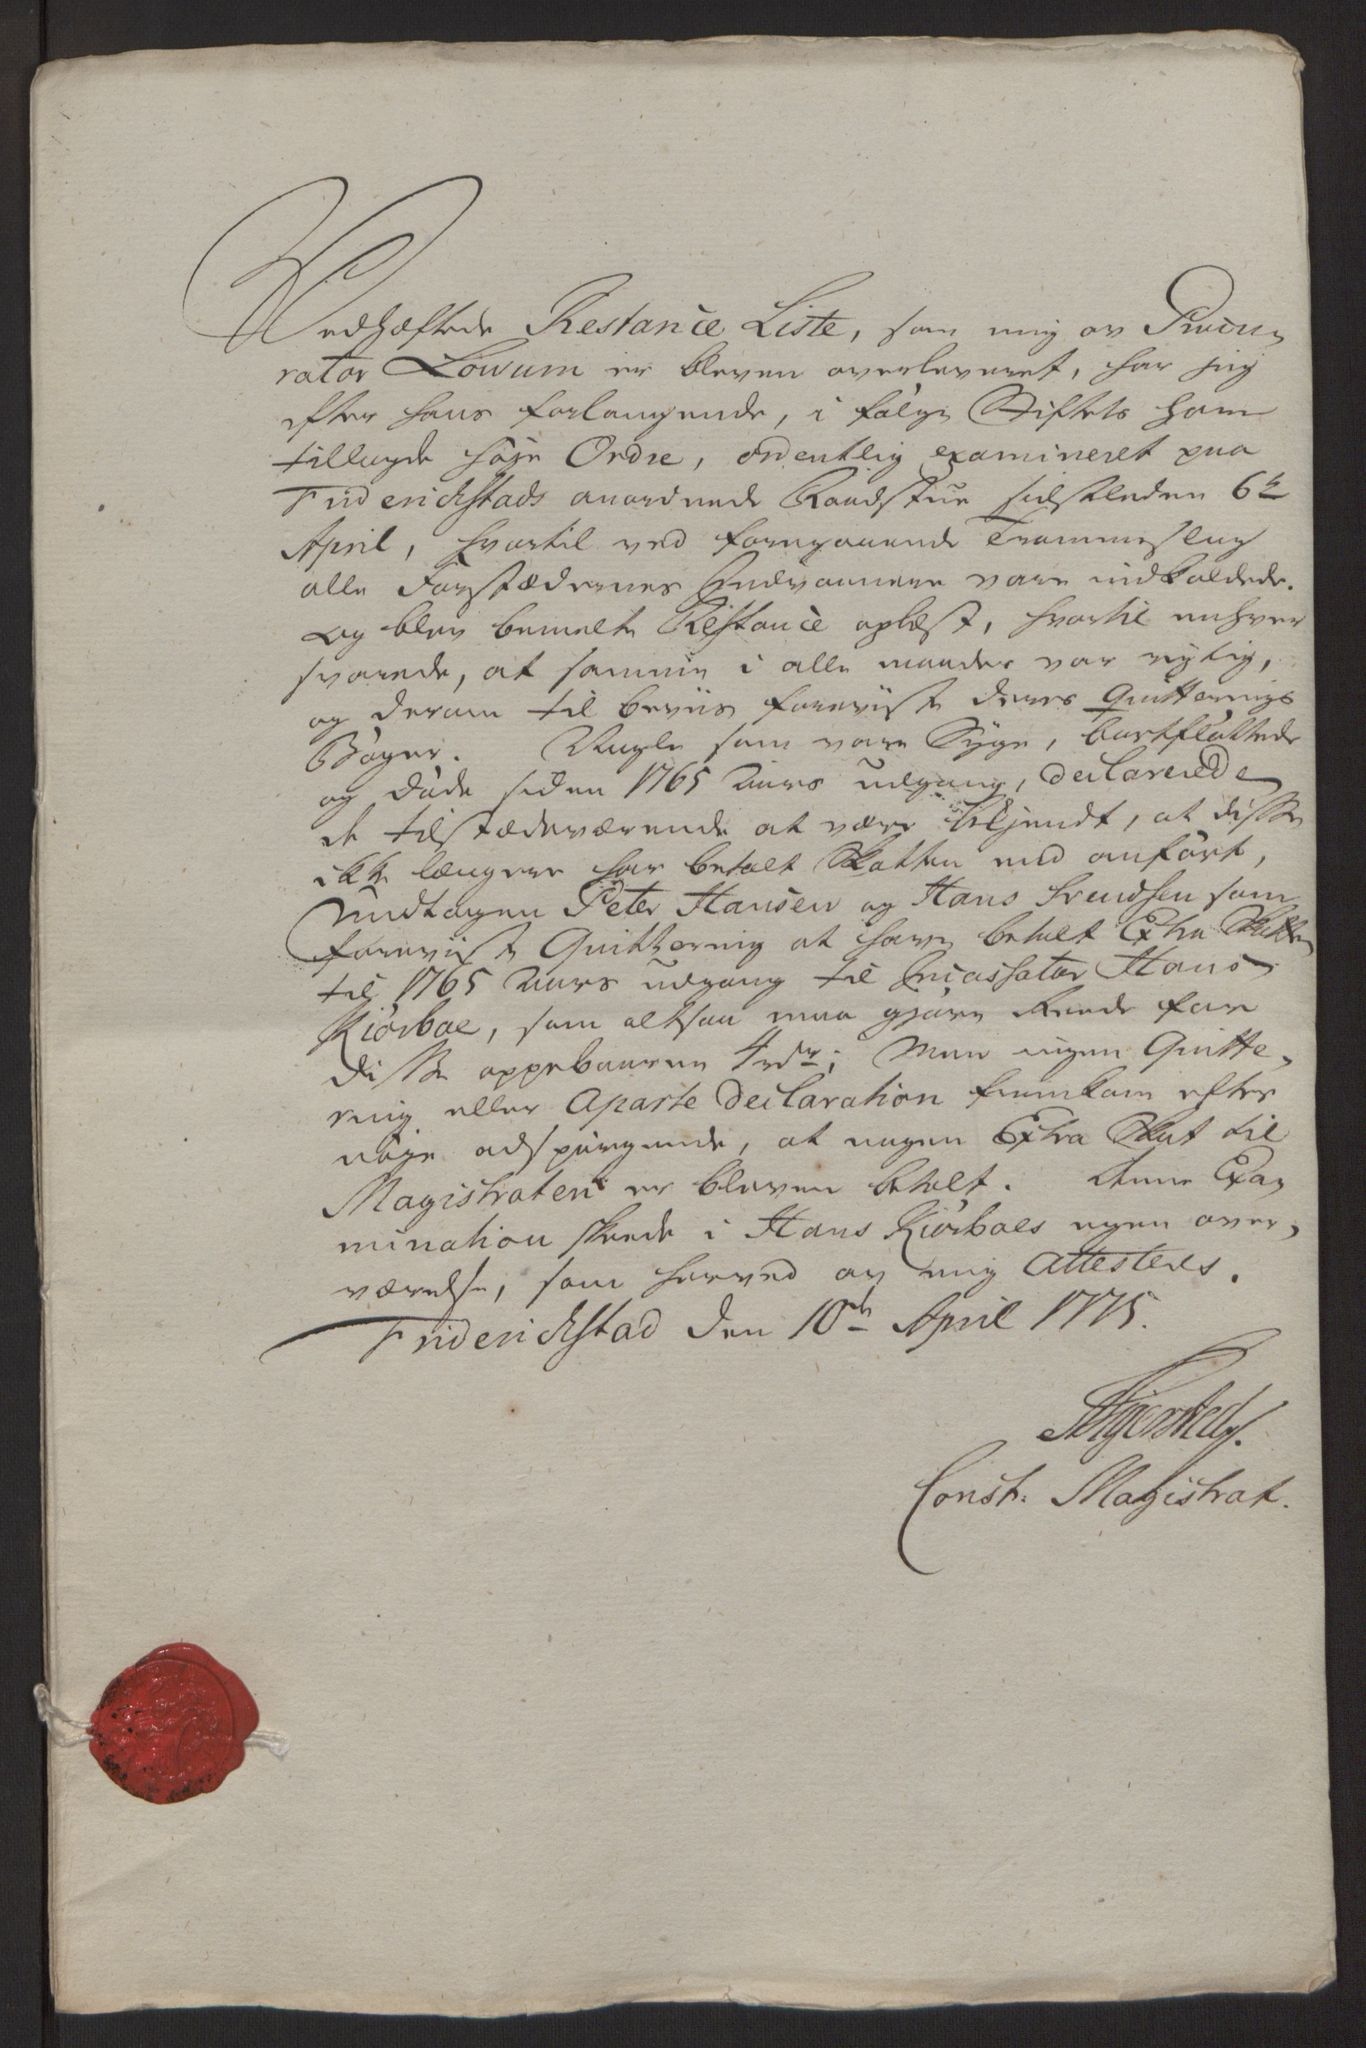 Vedhæftede Restance Liste, som mig av Procu-
rator Lowum er bleven overleveret, har jeg
efter hans forlangende, i følge Stiftets ham
tillagde høje Ordre, ordentlig examineret paa
Friderichstads anordnede Raadstue sidstleden 6te
April, hvortil ved foregaaende Trommeslag
alle Forstædernes Indvaanere vare indkaldede.
Og blev bemelte Restance oplæst, hvortil enhver
svarede, at samme i alle maader var rigtig,
og derom til beviis foreviste deres Quitterings
Bøger. Nogle som vare Syge, bortfløttede
og døde siden 1765 Aars udgang, declarerede
de tilstædeværende at være bekjendt, at disse
ikke længere har betalt Skatten end anført,
undtagen Peter Hansen og Hans Svendsen som
foreviiste Quittering at have betalt Extra Skatten
til 1765 Aars udgang til Incassator Hans
Kiørboe, som altsaa maa gjøre Rede for
disse oppebaarne 4 rdr; Men ingen Quitte-
ring eller aparte Declaration fremkom efter
nøje adspørgende, at nogen Extra Skat til
Magistraten er bleven betalt. Denne Exa-
mination skeede i Hans Kiørboes egen over-
værelse, som herved av mig Attesteres.
Friderichstad den 10de April 1775.
Const. Magistrat.